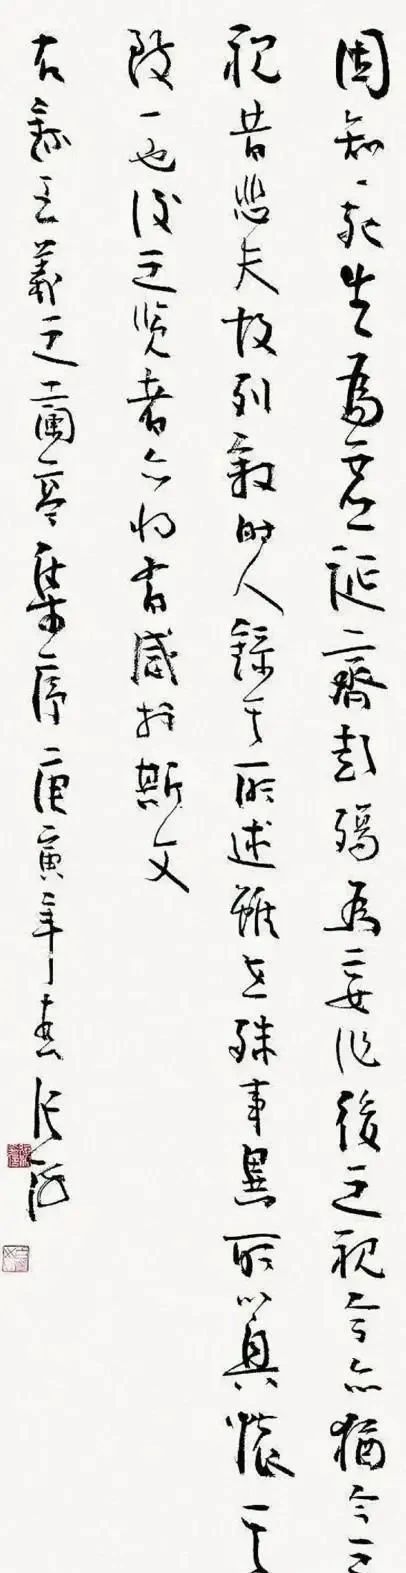 固知一死生為虛誕齊彭殤為妄作後之視今亦猶今之
視昔悲夫故列敘時人錄其所述雖世殊事異所以興懷其
致一也後之覽者亦將有感於斯文
右錄王羲之蘭亭集序庚寅年春張海